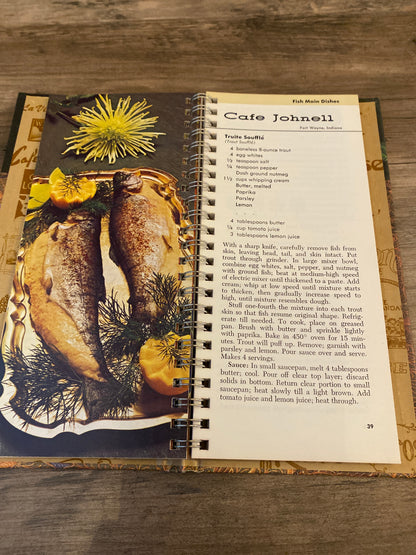 Fish Main Dishes
Cafe Johnell
Fort Wayne, Indiana
Truite Soufflé
(Trout Soufflé)
4 boneless 8-ounce trout
4 egg whites
½ teaspoon salt
¼ teaspoon pepper
Dash ground nutmeg
1½ cups whipping cream
Butter, melted
Paprika
Parsley
Lemon
4 tablespoons butter
¼ cup tomato juice
3 tablespoons lemon juice
With a sharp knife, carefully remove fish from
skin, leaving head, tail, and skin intact. Put
trout through grinder. In large mixer bowl,
combine egg whites, salt, pepper, and nutmeg
with ground fish; beat at medium-high speed
of electric mixer until thickened to a paste. Add
cream; whip at low speed until mixture starts
to thicken, then gradually increase speed to
high, until mixture resembles dough.
Stuff one-fourth the mixture into each trout
skin so that fish resume original shape. Refrig-
erate till needed. To cook, place on greased
pan. Brush with butter and sprinkle lightly
with paprika. Bake in 450° oven for 15 minutes.
Trout will puff up. Remove; garnish with
parsley and lemon. Pour sauce over and serve.
Makes 4 servings.
Sauce: In small saucepan, melt 4 tablespoons
butter; cool. Pour off clear top layer; discard
solids in bottom. Return clear portion to small
saucepan; heat slowly till a light brown. Add
tomato juice and lemon juice; heat through.
39